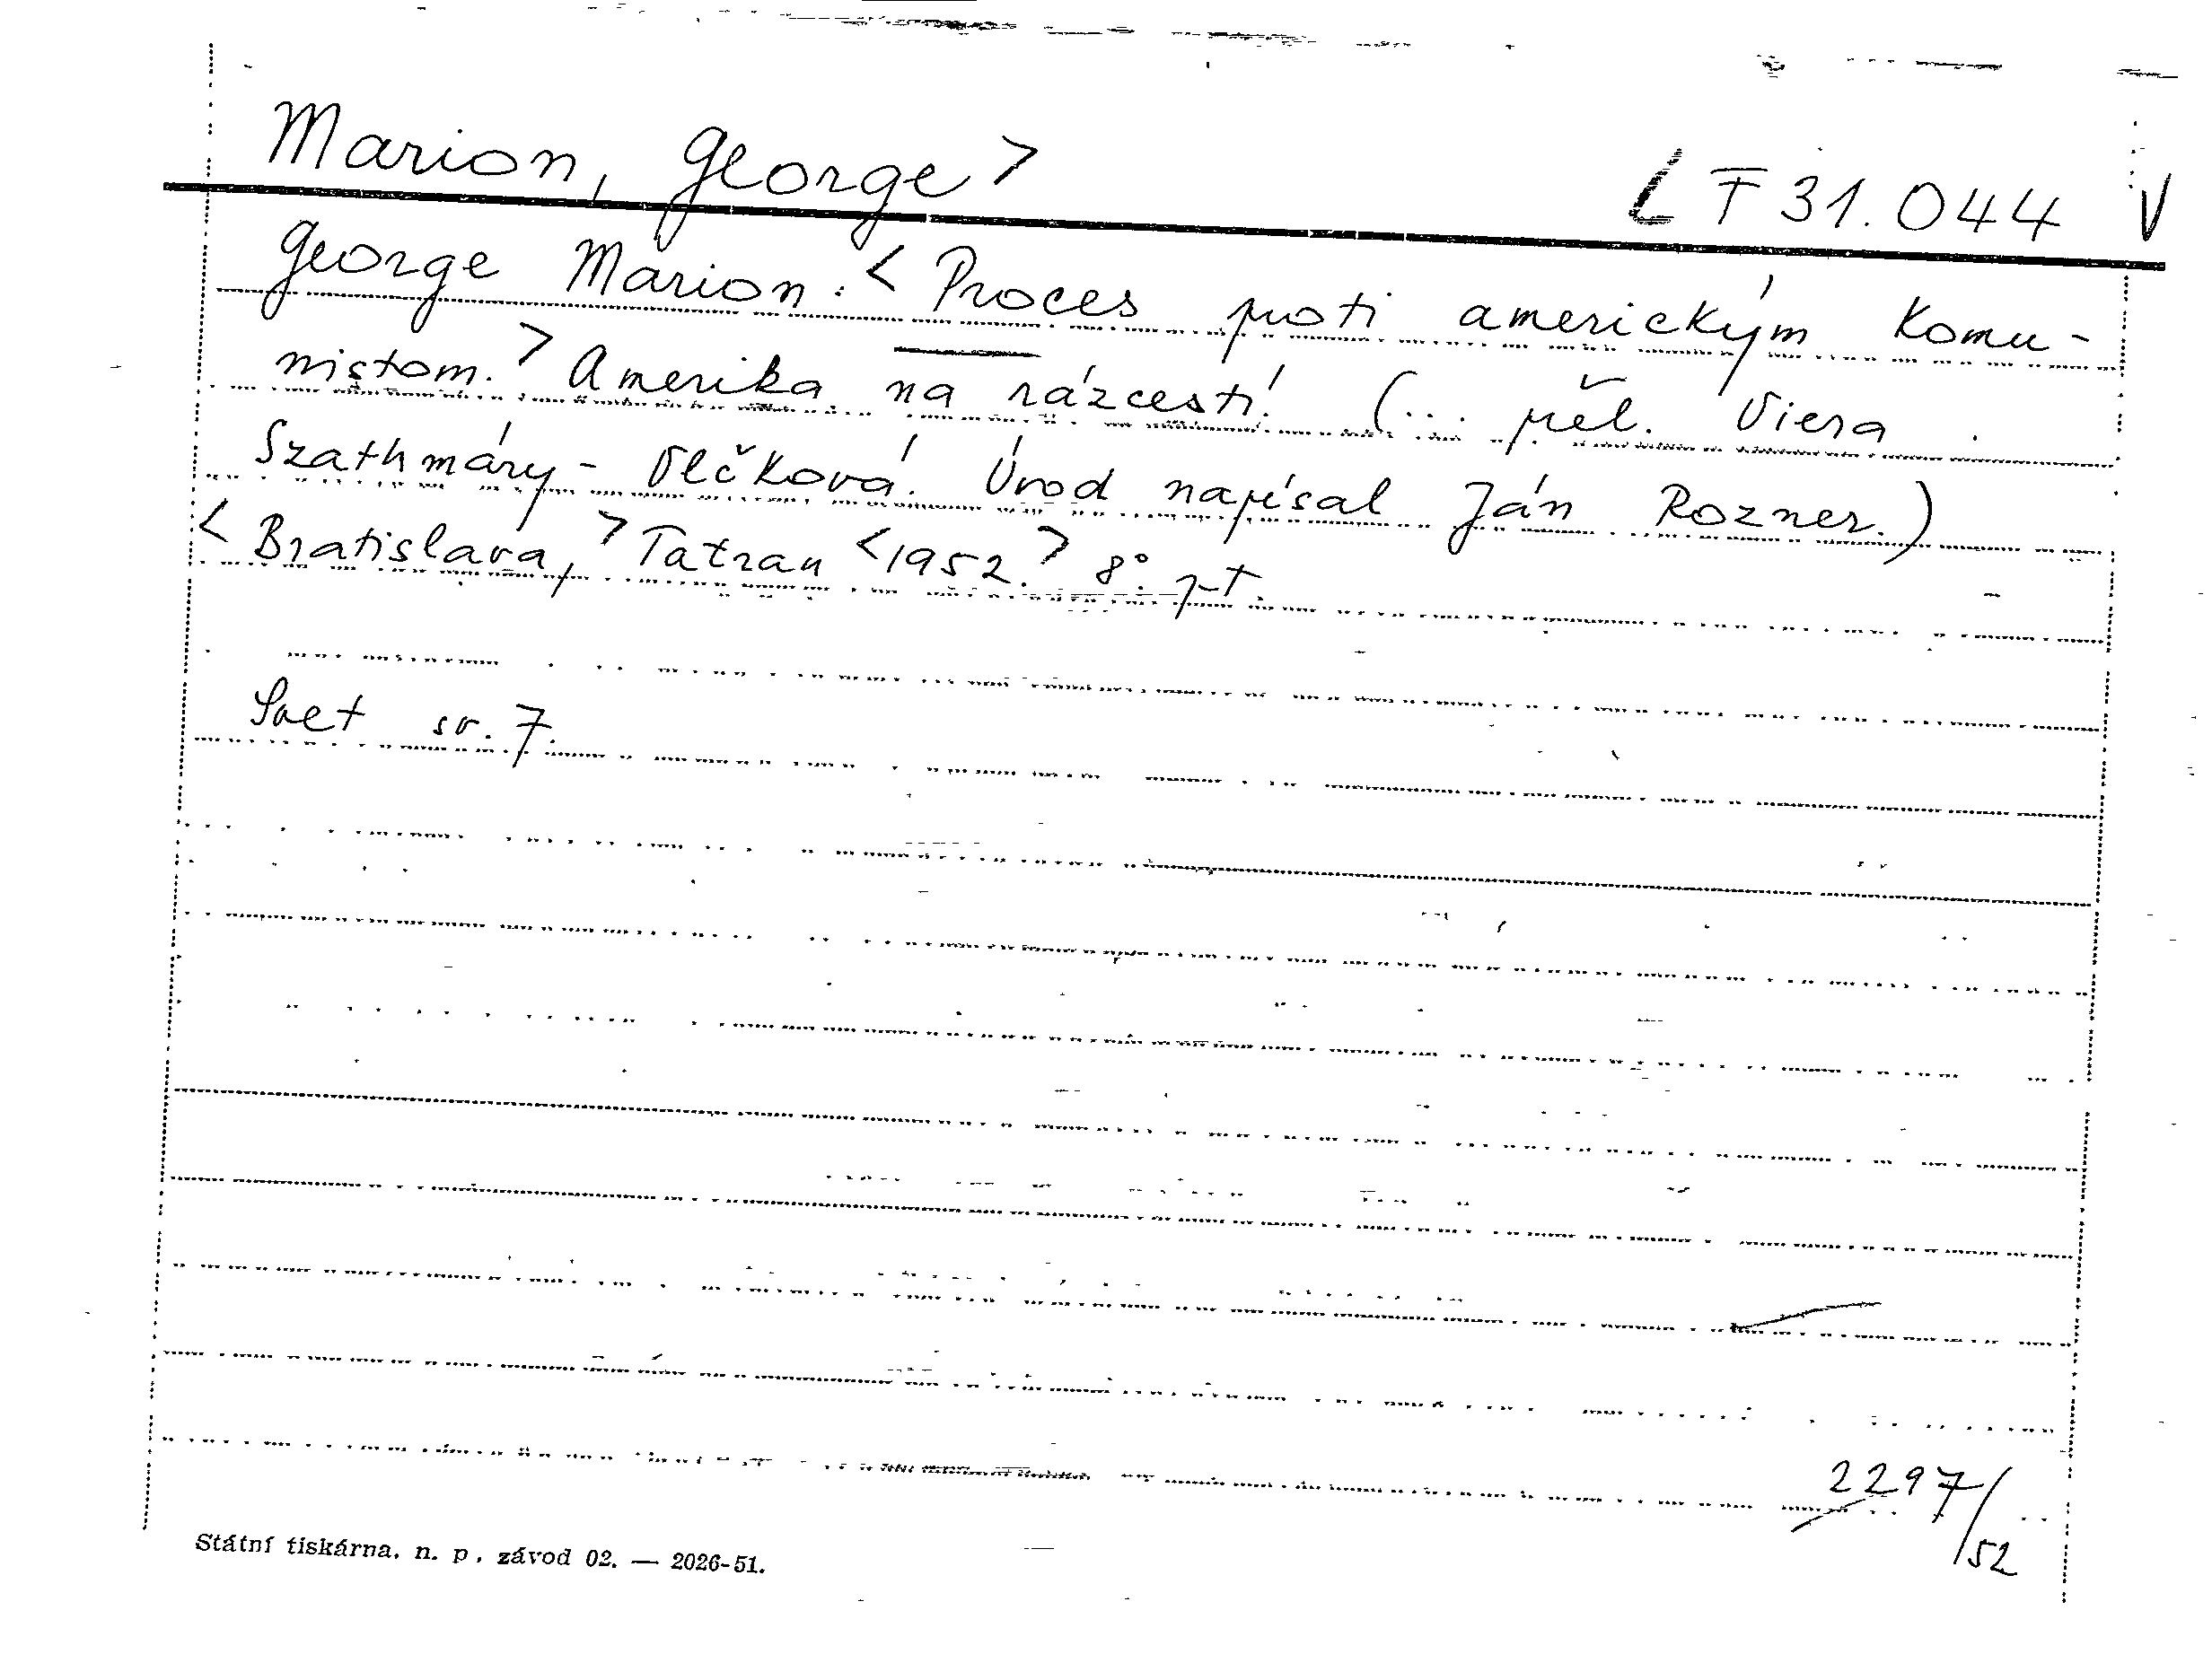 Marion, George> ⟨ T 31.044 V
George Marion: <Proces proti americkým komu-
nistom.> Amerika na rázcestí. (... přel. Viera
Szathmáry-Vlčková. Úvod napísal Ján Rozner.)
<Bratislava,> Tatran <1952.> 8°.
Svet sv. 7.
2297/52
Státní tiskárna, n. p., závod 02. — 2026-51.